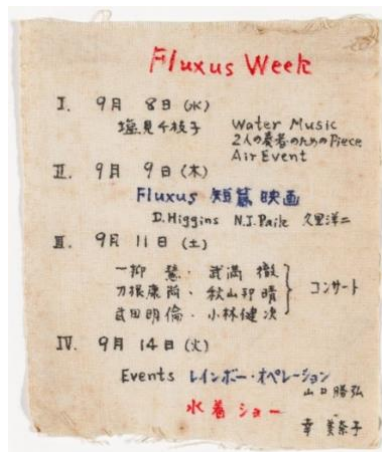 Fluxus Week
I. 9月 8日 (水)
塩見千枝子 Water Music
2人の奏者のためのPiece
Air Event
II. 9月 9日 (木)
Fluxus 短篇映画
D.Higgins N.J.Paik 久里洋二
III. 9月 11日 (土)
一柳 慧・武満 徹
刀根康尚・秋山邦晴 コンサート
武田明倫・小林健次
IV. 9月 14日 (火)
Events レインボー・オペレーション
山口勝弘
水着ショー
幸 美奈子